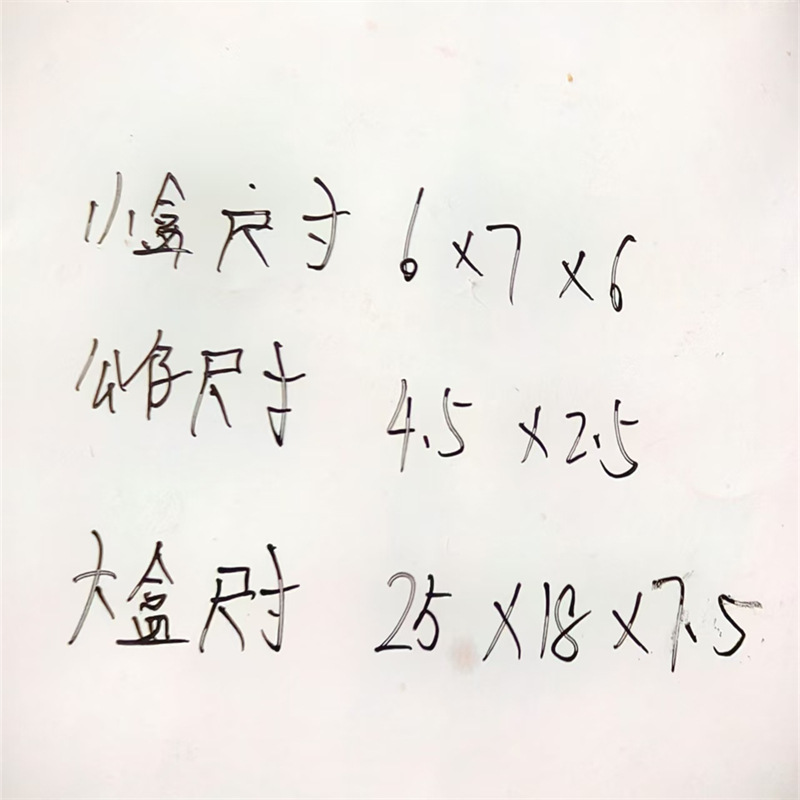 小盒尺寸 6×7×6
公仔尺寸 4.5×2.5
大盒尺寸 25×18×7.5